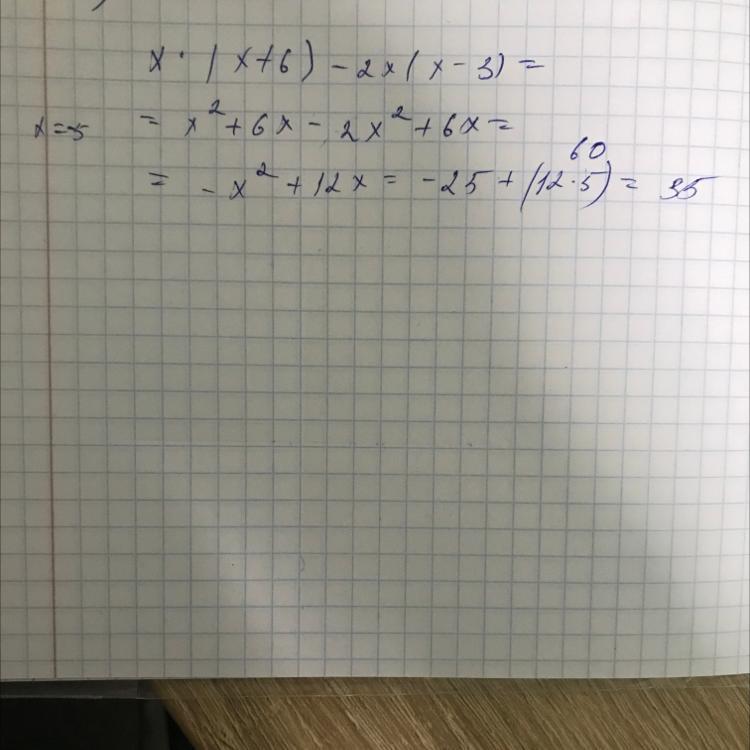 x · (x+6) - 2x(x-3) =
x=5 = x² + 6x - 2x² + 6x =
60
= -x² + 12x = -25 + (12·5) = 35